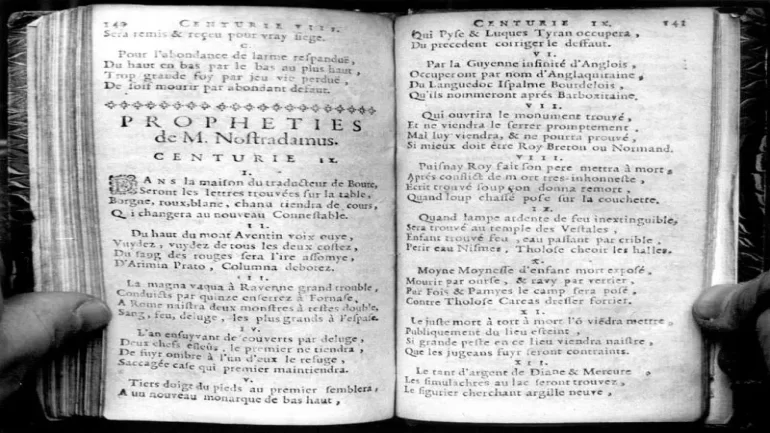 140 CENTURIE VIII.
Sera remis & reçeu pour vray siege.
C.
Pour l'abondance de larme respanduë,
Du haut en bas par le bas au plus haut,
Trop grande foy par jeu vie perduë,
De soif mourir par abondant defaut.
PROPHETIES
de M. Nostradamus.
CENTURIE IX.
I.
DANS la maison du traducteur de Boure,
Seront les lettres trouvées sur la table,
Borgne, roux, blanc, chanu tiendra de cours,
Qui changera au nouveau Connestable.
II.
Du haut du mont Aventin voix ouye,
Vuydez, vuydez de tous les deux costez,
Du sang des rouges sera l'ire assomye,
D'Arimin Prato, Columna deborez.
III.
La magna vaqua à Ravenne grand trouble,
Conduicts par quinze enserrez à Fornase,
A Rome naistra deux monstres à testes double,
Sang, feu, deluge, les plus grands à l'espase.
IV.
L'an ensuyvant decouverts par deluge,
Deux chefs esleus, le premier ne tiendra,
De fuyr ombre à l'un d'eux le refuge,
Saccagée case qui premier maintiendra.
V.
Tiers doigt du pieds au premier semblera,
A un nouveau monarque de bas haut,
CENTURIE IX. 141
Qui Pyse & Luques Tyran occupera,
Du precedent corriger le deffaut.
VI.
Par la Guyenne infinité d'Anglois,
Occuperont par nom d'Anglaquitaine,
Du Languedoc Ispalme Bourdelois,
Qu'ils nommeront aprés Barboxitaine.
VII.
Qui ouvrira le monument trouvé,
Et ne viendra le serrer promptement.
Mal luy viendra, & ne pourra prouvé,
Si mieux doit être Roy Breton ou Normand.
VIII.
Puisnay Roy fait son pere mettra à mort,
Aprés conflict de mort tres-inhonneste,
Ecrit trouvé soupçon donna remort,
Quand loup chassé pose sur la couchette.
IX.
Quand lampe ardente de feu inextinguible,
Sera trouvé au temple des Vestales,
Enfant trouvé feu, eau passant par crible,
Perir eau Nismes, Tholose cheoir les halles.
X.
Moyne Moynesse d'enfant mort exposé,
Mourir par ourse, & ravy par verrier,
Par Foix & Pamyes le camp sera posé,
Contre Tholose Carcas dresser forrier.
XI.
Le juste mort à tort à mort l'ō viēdra mettre,
Publiquement du lieu esteint,
Si grande peste en ce lieu viendra naistre,
Que les jugeans fuyr seront contraints.
XII.
Le tant d'argent de Diane & Mercure
Les simulachres au lac seront trouvez,
Le figurier cherchant argille neuve,